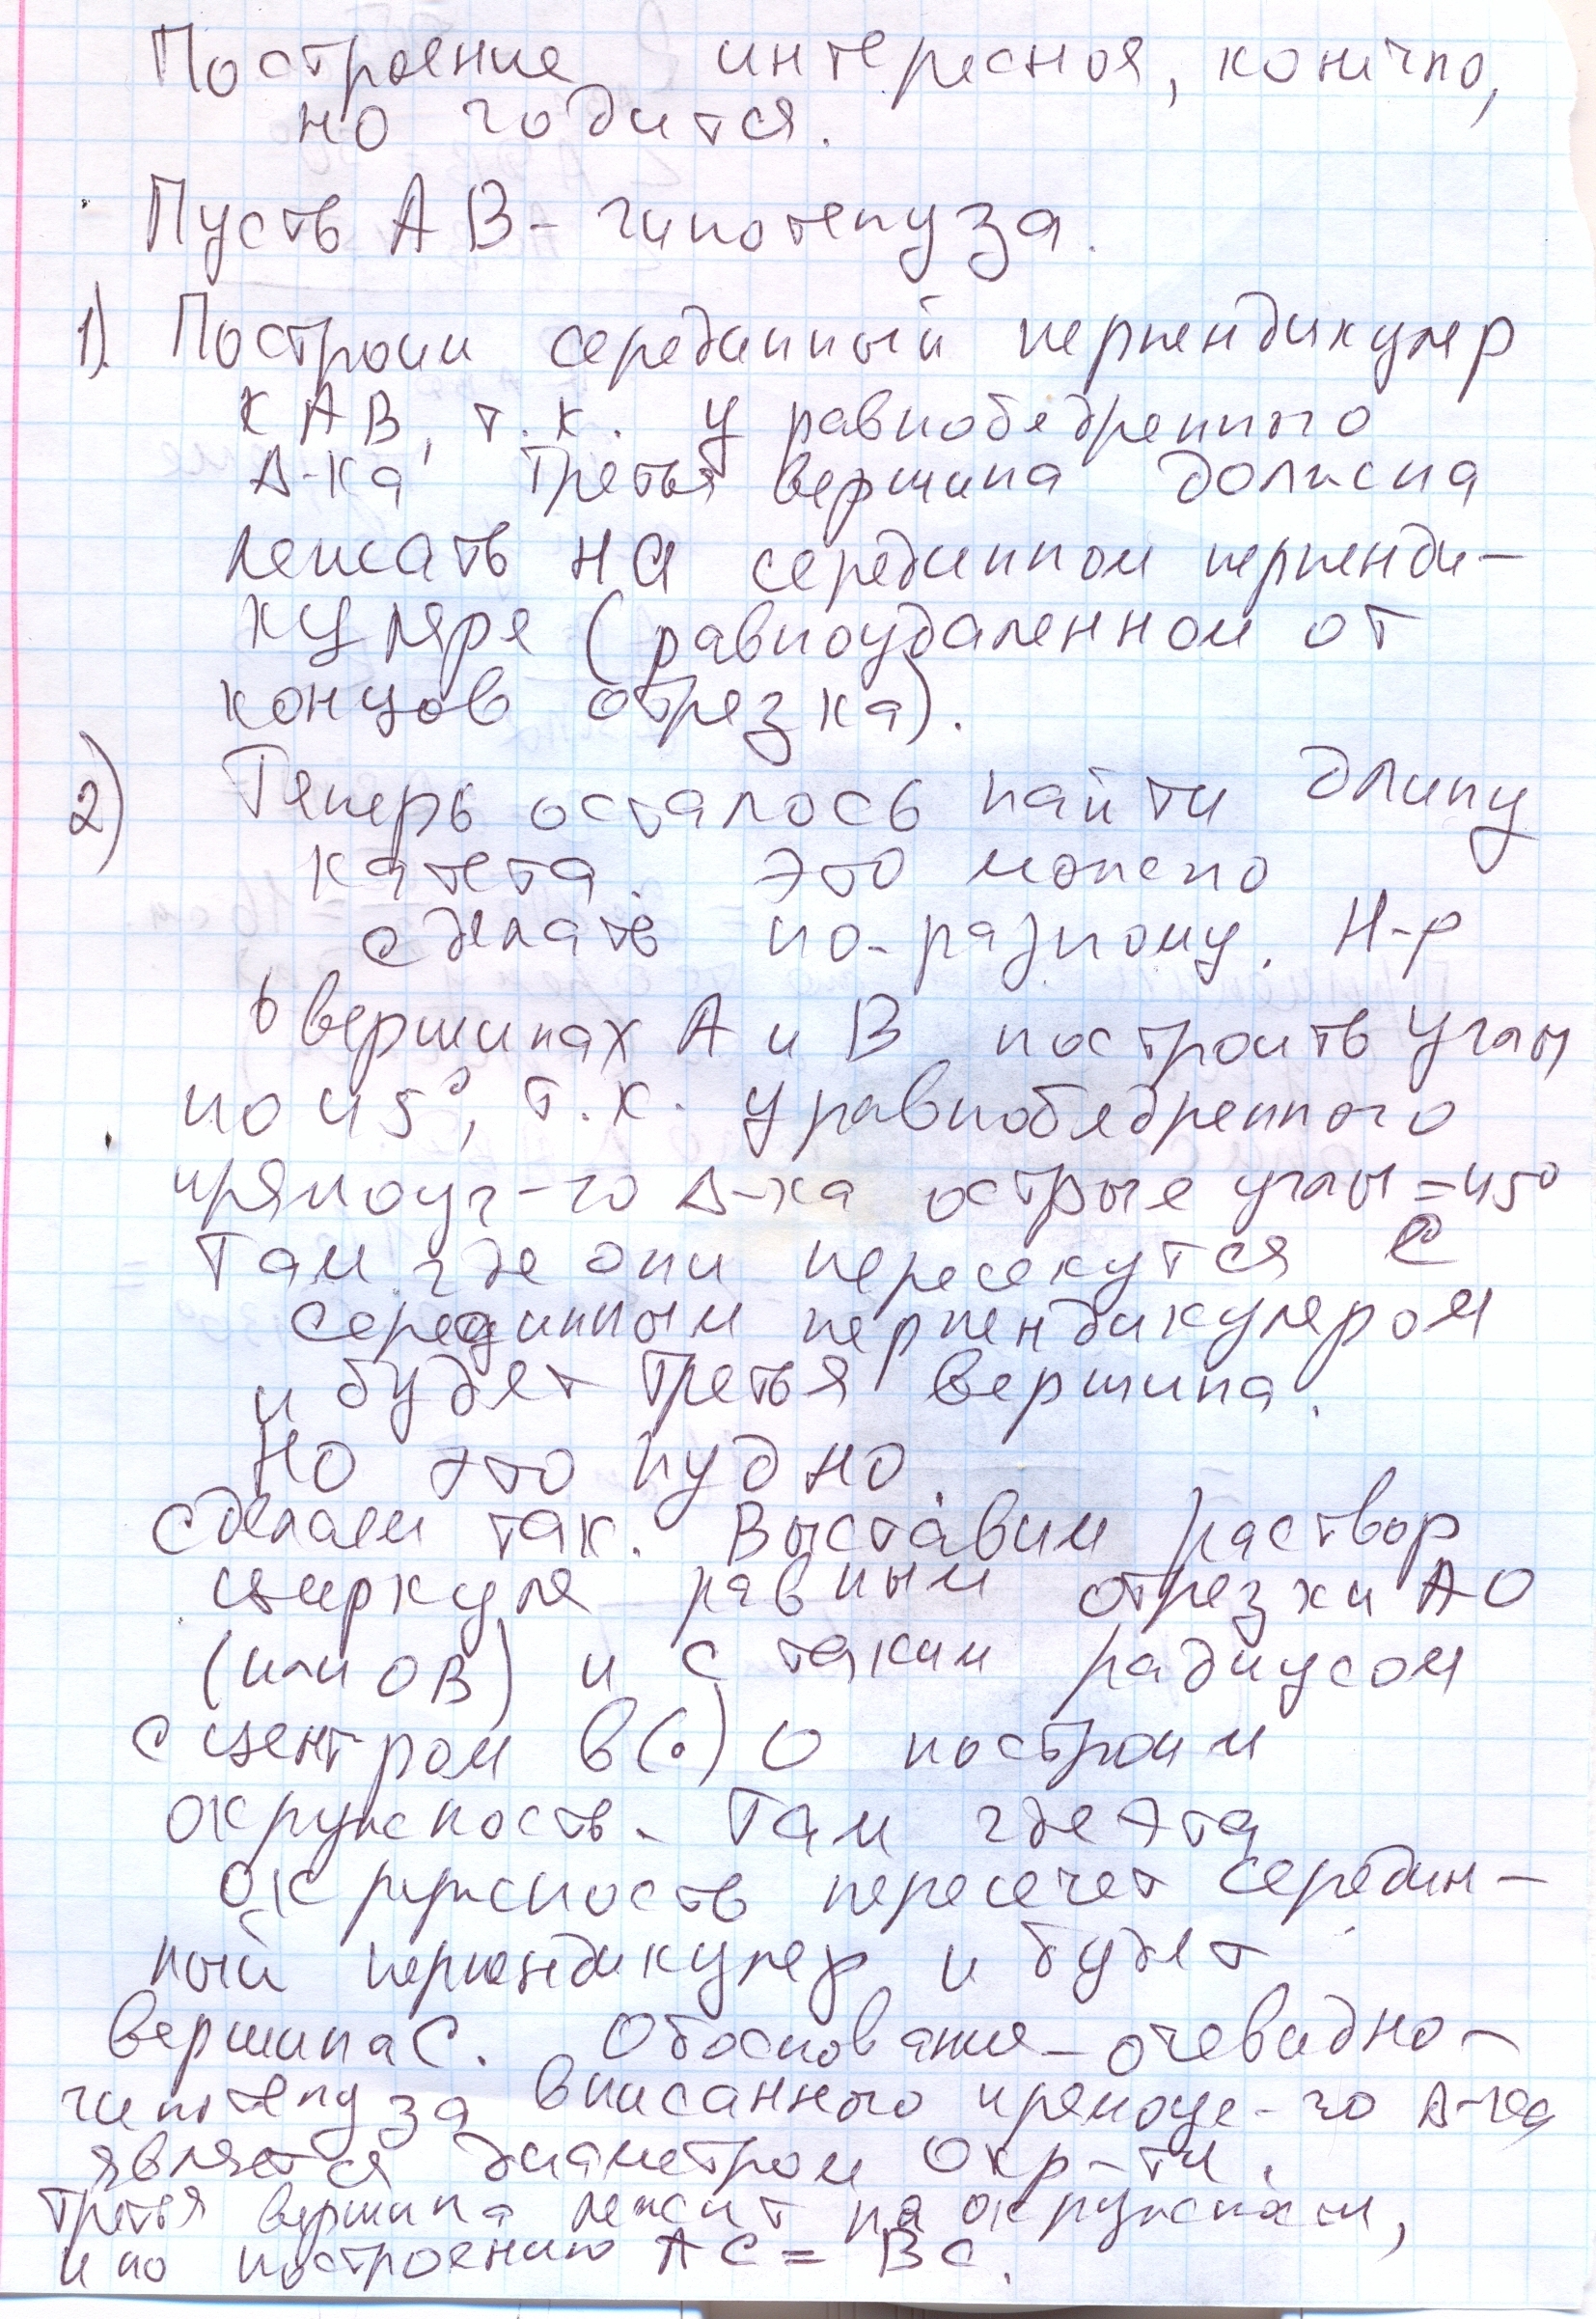 Построение интересная, конечно,
но годится.
Пусть AB - гипотенуза.
1). Построим серединный перпендикуляр
к AB, т.к. у равнобедренного
Δ-ка третья вершина должна
лежать на серединном перпенди-
куляре (равноудаленном от
концов отрезка).
2) Теперь осталось найти длину
катета. Это можно
сделать по-разному. Н-р
в вершинах A и B построить углы
по 45°, т.к. у равнобедренного
прямоуг-го Δ-ка острые углы = 45°
Там где они пересекутся с
серединным перпендикуляром
и будет третья вершина.
Но это нудно.
Сделаем так. Выставим раствор
циркуля равным отрезки AO
(или OB) и с таким радиусом
с центром в (•) O построим
окружность. Там где эта
окружность пересечет середин-
ный перпендикуляр и будет
вершина C. Обоснование - очевидно -
гипотенуза вписанного прямоуг-го Δ-ка
является диаметром окр-ти,
третья вершина лежит на окружности,
и по построению AC = BC.